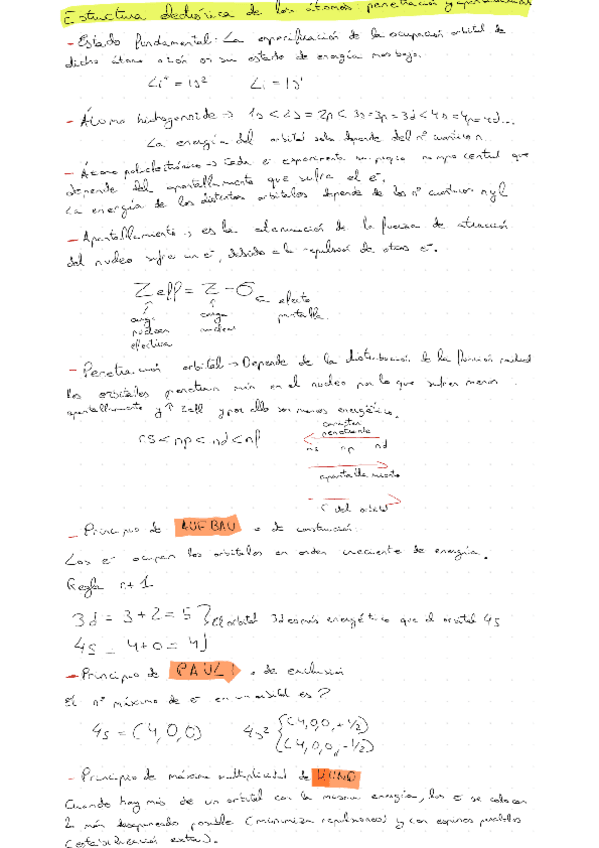 Estructura electrónica de los átomos: penetración y apantallamiento
- Estado fundamental: La especificación de la ocupación orbital de
dicho átomo o ión en su estado de energía más bajo.
Li⁺ = 1s² Li = 1s¹
- Átomo hidrogenoide → 1s < 2s = 2p < 3s = 3p = 3d < 4s = 4p = 4d...
La energía del orbital solo depende del nº cuántico n.
- Átomo polielectrónico → Cada e⁻ experimenta su propio campo central que
depende del apantallamiento que sufra el e⁻.
La energía de los distintos orbitales depende de los nº cuánticos n y l
- Apantallamiento → es la atenuación de la fuerza de atracción
del núcleo sufre un e⁻, debido a la repulsión de otros e⁻.
Zeff = Z - σ ← efecto
carga carga pantalla.
nuclear nuclear
efectiva
- Penetración orbital → Depende de la distribución de la función radial
los orbitales penetran más en el núcleo por lo que sufren menos
apantallamiento y ↑ Zeff y por ello son menos energético.
carácter
penetrante
ns < np < nd < nf
ns np nd
apantallamiento
E del orbital
- Principio de AUFBAU o de construcción:
Los e⁻ ocupan los orbitales en orden creciente de energía.
Regla n + l
3d = 3 + 2 = 5 } El orbital 3d es más energético que el orbital 4s
4s = 4 + 0 = 4
- Principio de PAULI o de exclusión
El nº máximo de e⁻ en un orbital es 2
4s = (4,0,0) 4s² { (4,0,0,+1/2)
(4,0,0,-1/2)
- Principio de máxima multiplicidad de HUND
Cuando hay más de un orbital con la misma energía, los e⁻ se colocan
lo más desapareado posible (minimiza repulsiones) y con espines paralelos
(estabilización extra).